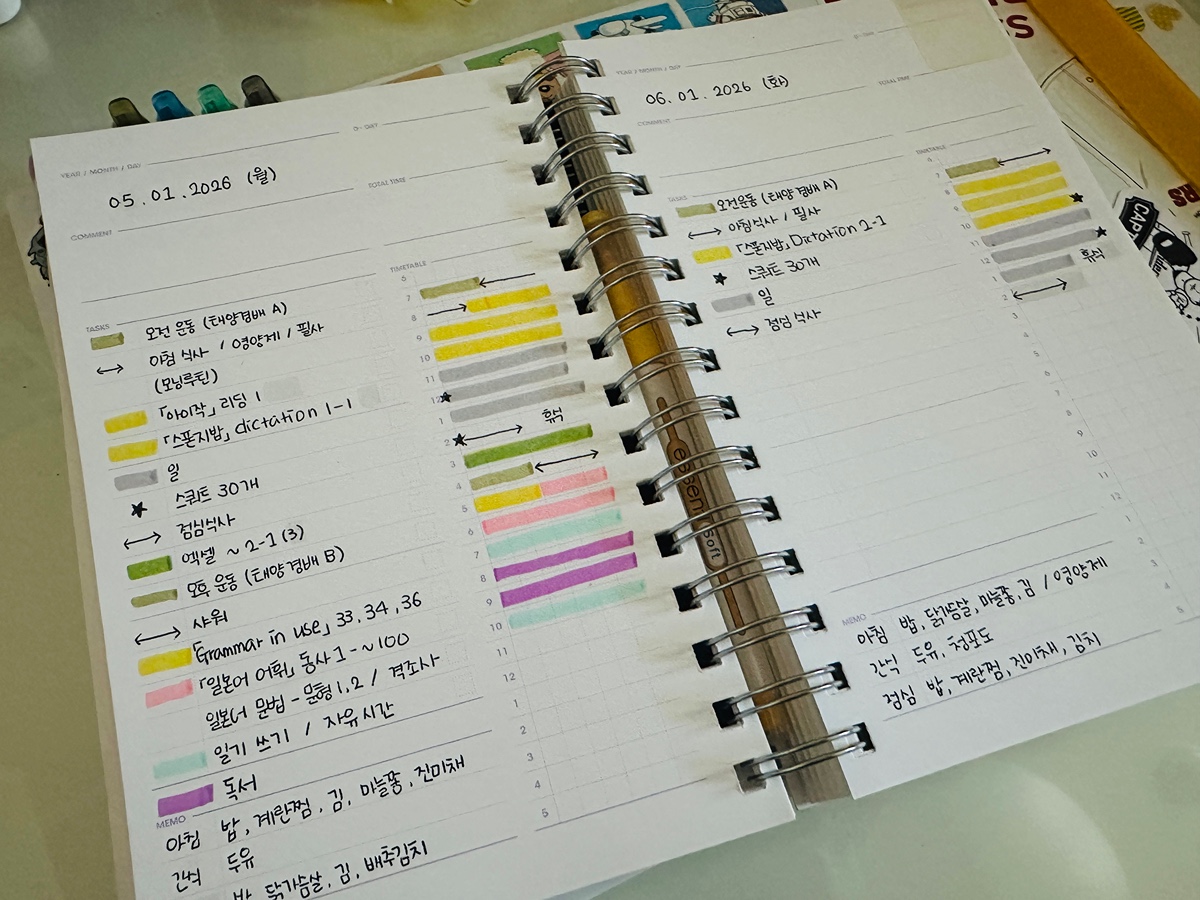 YEAR / MONTH / DAY
D-DAY
05.01.2026 (월)
TOTAL TIME
COMMENT
TASKS
오전 운동 (태양경배 A)
아침 식사 / 영양제 / 필사
(모닝루틴)
「아이작」 리딩 1
「스폰지밥」 dictation 1-1
일
스쿼트 30개
점심식사
엑셀 ~ 2-1 (3)
오후 운동 (태양경배 B)
샤워
「Grammar in use」 33, 34, 36
「일본어 어휘」 동사 1 - ~100
일본어 문법 - 문형 1, 2 / 격조사
일기 쓰기 / 자유시간
독서
MEMO
아침 밥, 계란찜, 김, 마늘쫑, 진미채
간식 두유
밥, 닭가슴살, 김, 배추김치
TIMETABLE
6
7
8
9
10
11
12
1
휴식
2
3
4
5
6
7
8
9
10
11
12
1
2
3
4
5
essen
Soft
YEAR / MONTH / DAY
D-DAY
06.01.2026 (화)
TOTAL TIME
COMMENT
TASKS
오전운동 (태양경배 A)
아침식사 / 필사
「스폰지밥」 Dictation 2-1
스쿼트 30개
일
점심 식사
TIMETABLE
6
7
8
9
10
11
12
1
휴식
2
3
4
5
6
7
8
9
10
11
12
1
2
3
4
5
MEMO
아침 밥, 닭가슴살, 마늘쫑, 김 / 영양제
간식 두유, 청포도
점심 밥, 계란찜, 진미채, 김치
CAPT